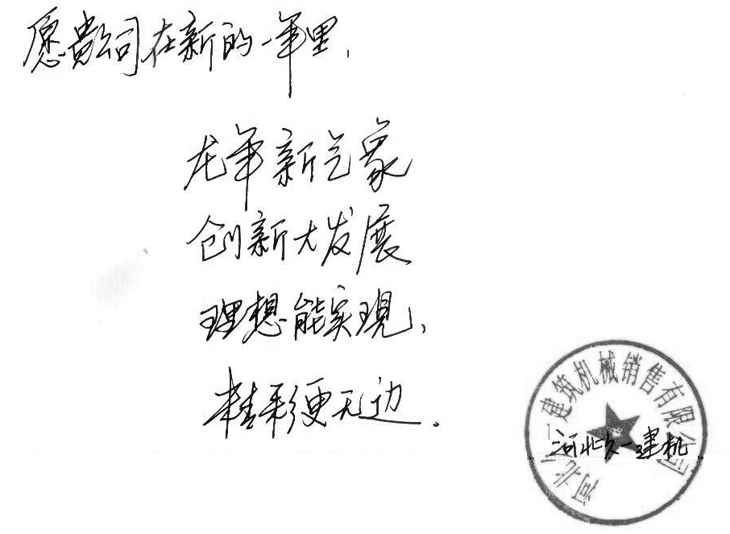 愿贵公司在新的一年里,
龙年新气象
创新大发展
理想能实现,
精彩更无边.
河北 一建筑机械销售有限公司
河北 一建机